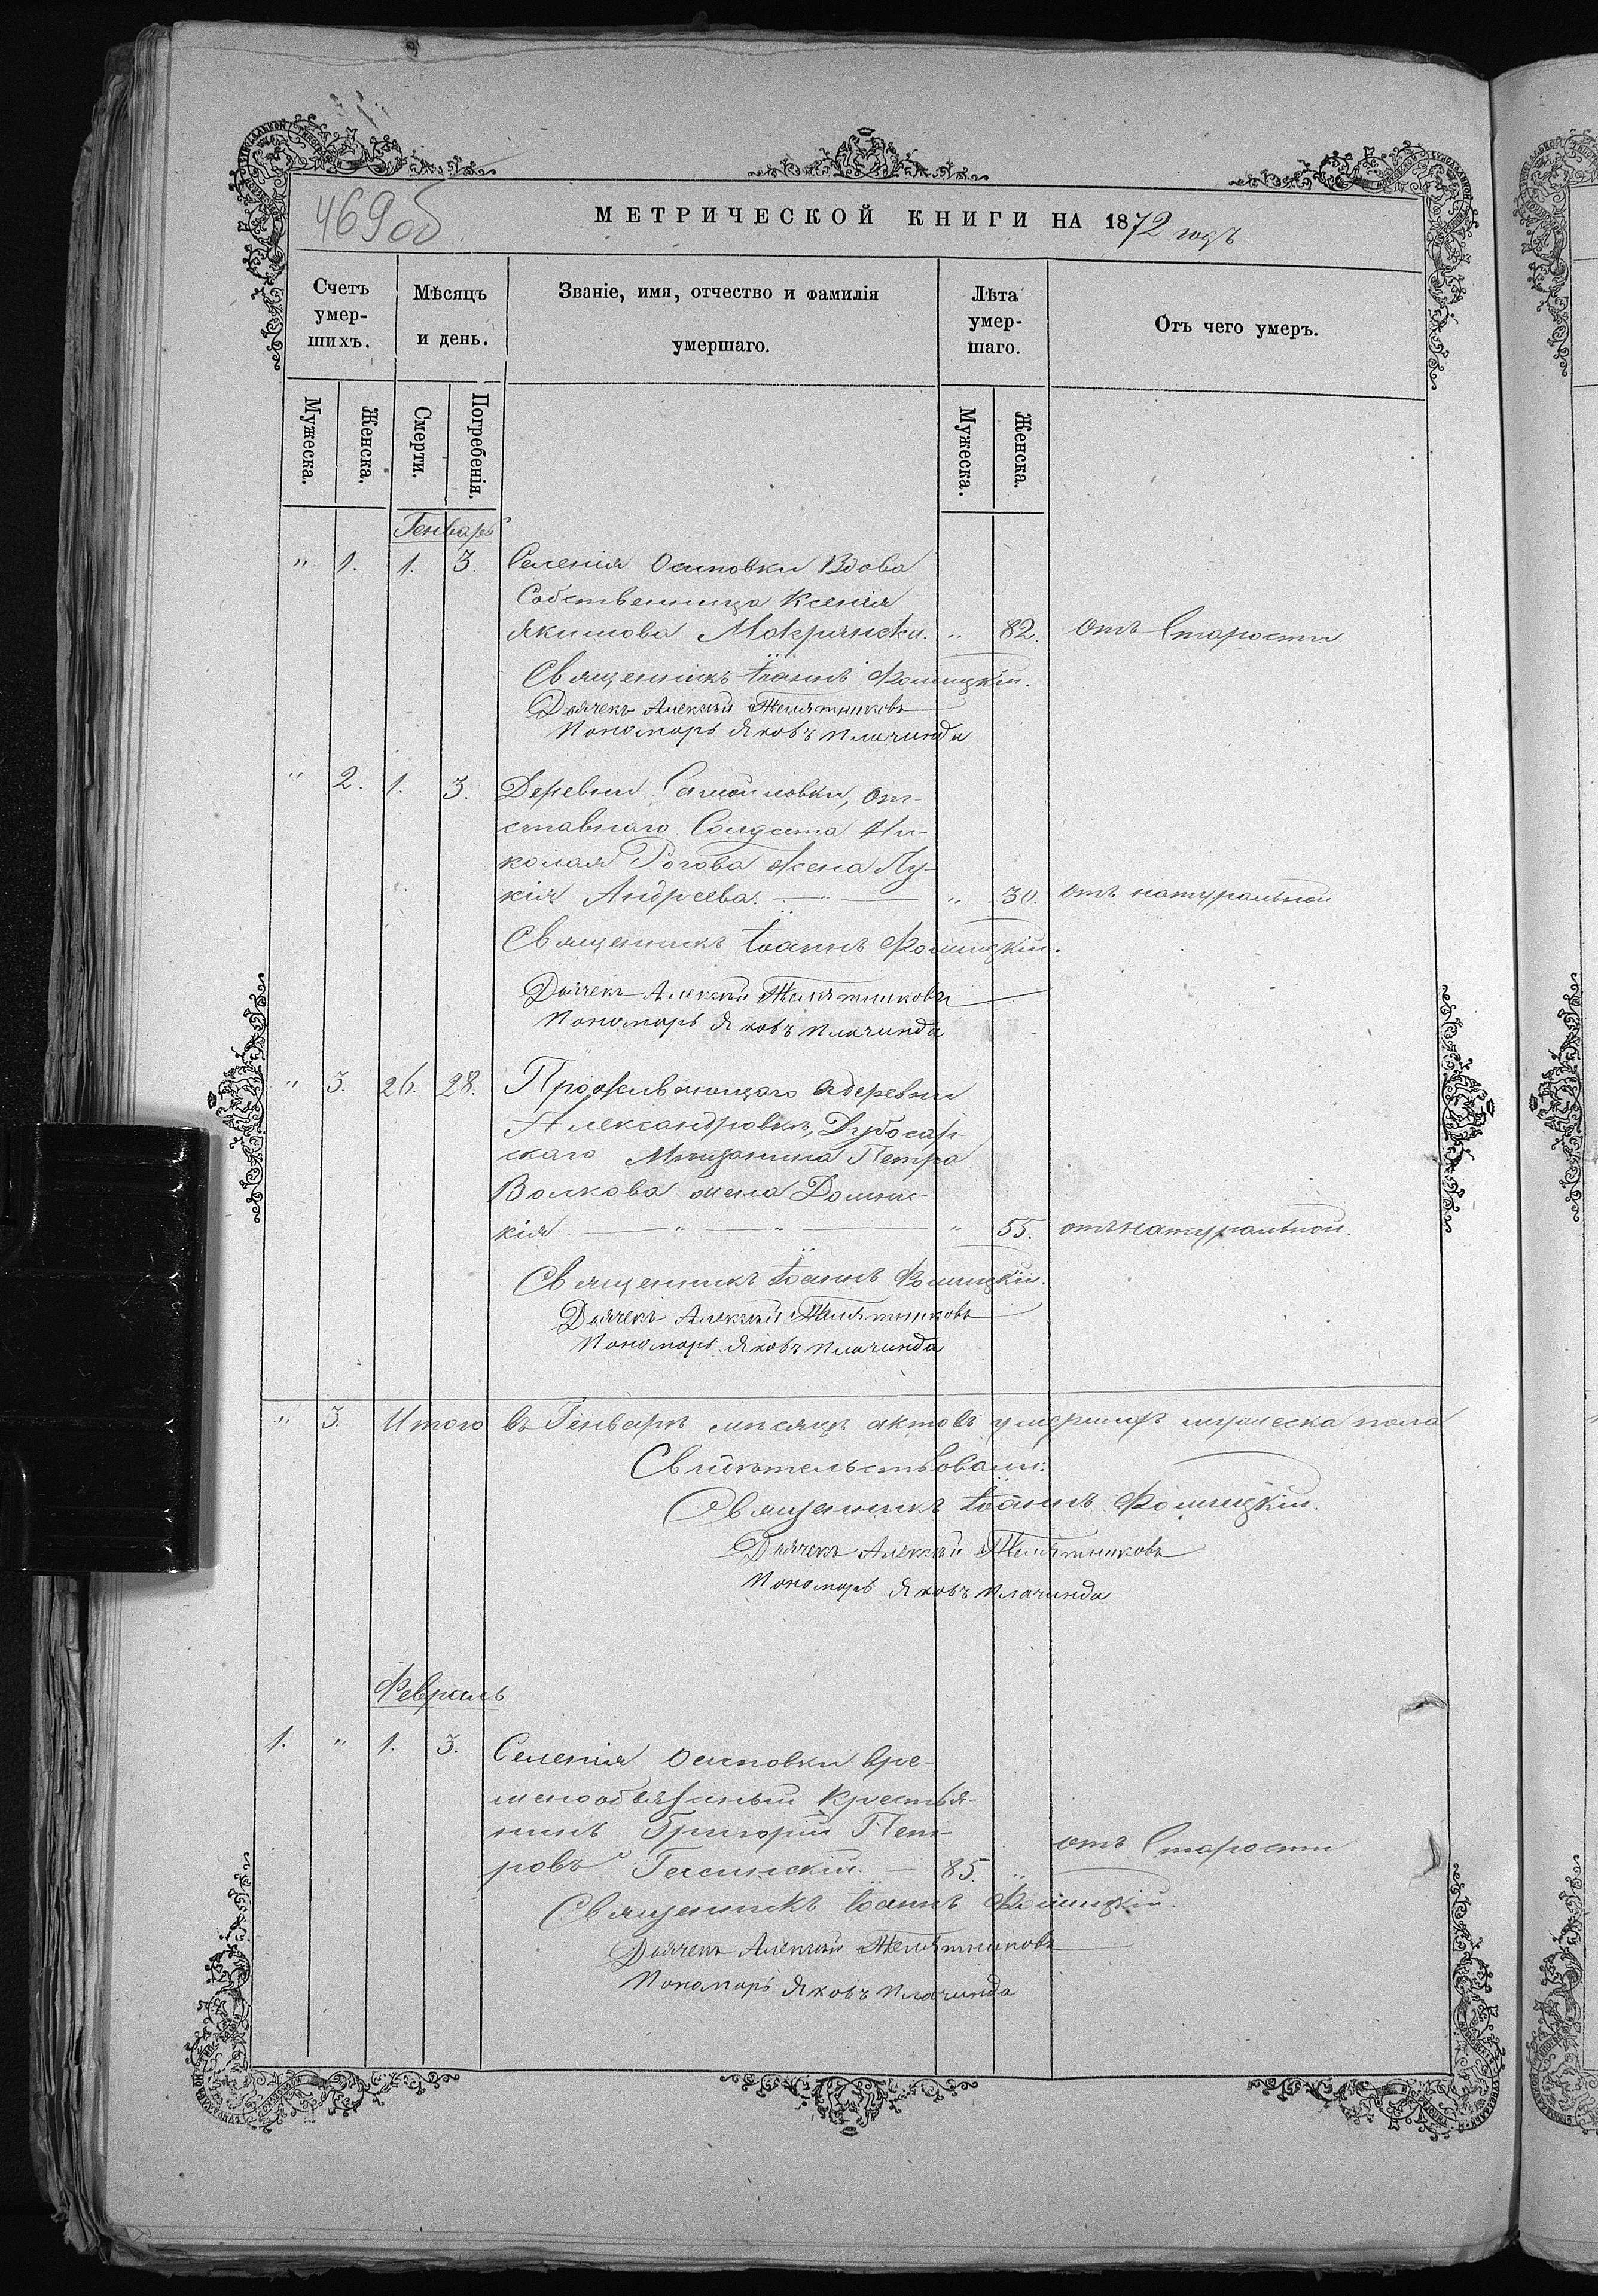 469об
МЕТРИЧЕСКОЙ КНИГИ НА 1872 годъ
Счетъ умер-шихъ.
Мѣсяцъ и день.
Званіе, имя, отчество и фамилія умершаго.
Лѣта умер-шаго.
Отъ чего умеръ.
Мужеска.
Женска.
Смерти.
Погребенія.
Мужеска.
Женска.
Генварь
" 1. 1. 3. Селенія Осиповки Вдова
Собственница Ксенія
Якимова Мокрянска. " 82. отъ Старости
Священникъ Іоаннъ Фомицкій.
Дьячекъ Алексѣй Телятниковъ
Пономарь Яковъ Плачинда
" 2. 1. 3. Деревни Самойловки, от-
ставнаго Солдата Ни-
колая Рогова жена Лу-
кія Андреева. " 30. отъ натуральной
Священникъ Іоаннъ Фомицкій.
Дьячекъ Алексѣй Телятниковъ
Пономарь Яковъ Плачинда
" 3. 26. 28. Проживающаго в деревни
Александровки, Дубосар-
скаго Мещанина Петра
Волкова жена Домни-
кія " " " 55. отъ натуральной.
Священникъ Іоаннъ Фомицкій.
Дьячекъ Алексѣй Телятниковъ
Пономарь Яковъ Плачинда
" 3. Итого въ Генварѣ мѣсяцѣ актовъ умершихъ мужеска пола
Свидѣтельствовали:
Священникъ Іоаннъ Фомицкій.
Дьячекъ Алексѣй Телятниковъ
Пономарь Яковъ Плачинда
Февраль
1. " 1. 3. Селенія Осиповки вре-
менообязаный крестья-
нинъ Григорій Пет-
ровъ 85. " отъ Старости
Священникъ Іоаннъ Фомицкій.
Дьячекъ Алексѣй Телятниковъ
Пономарь Яковъ Плачинда